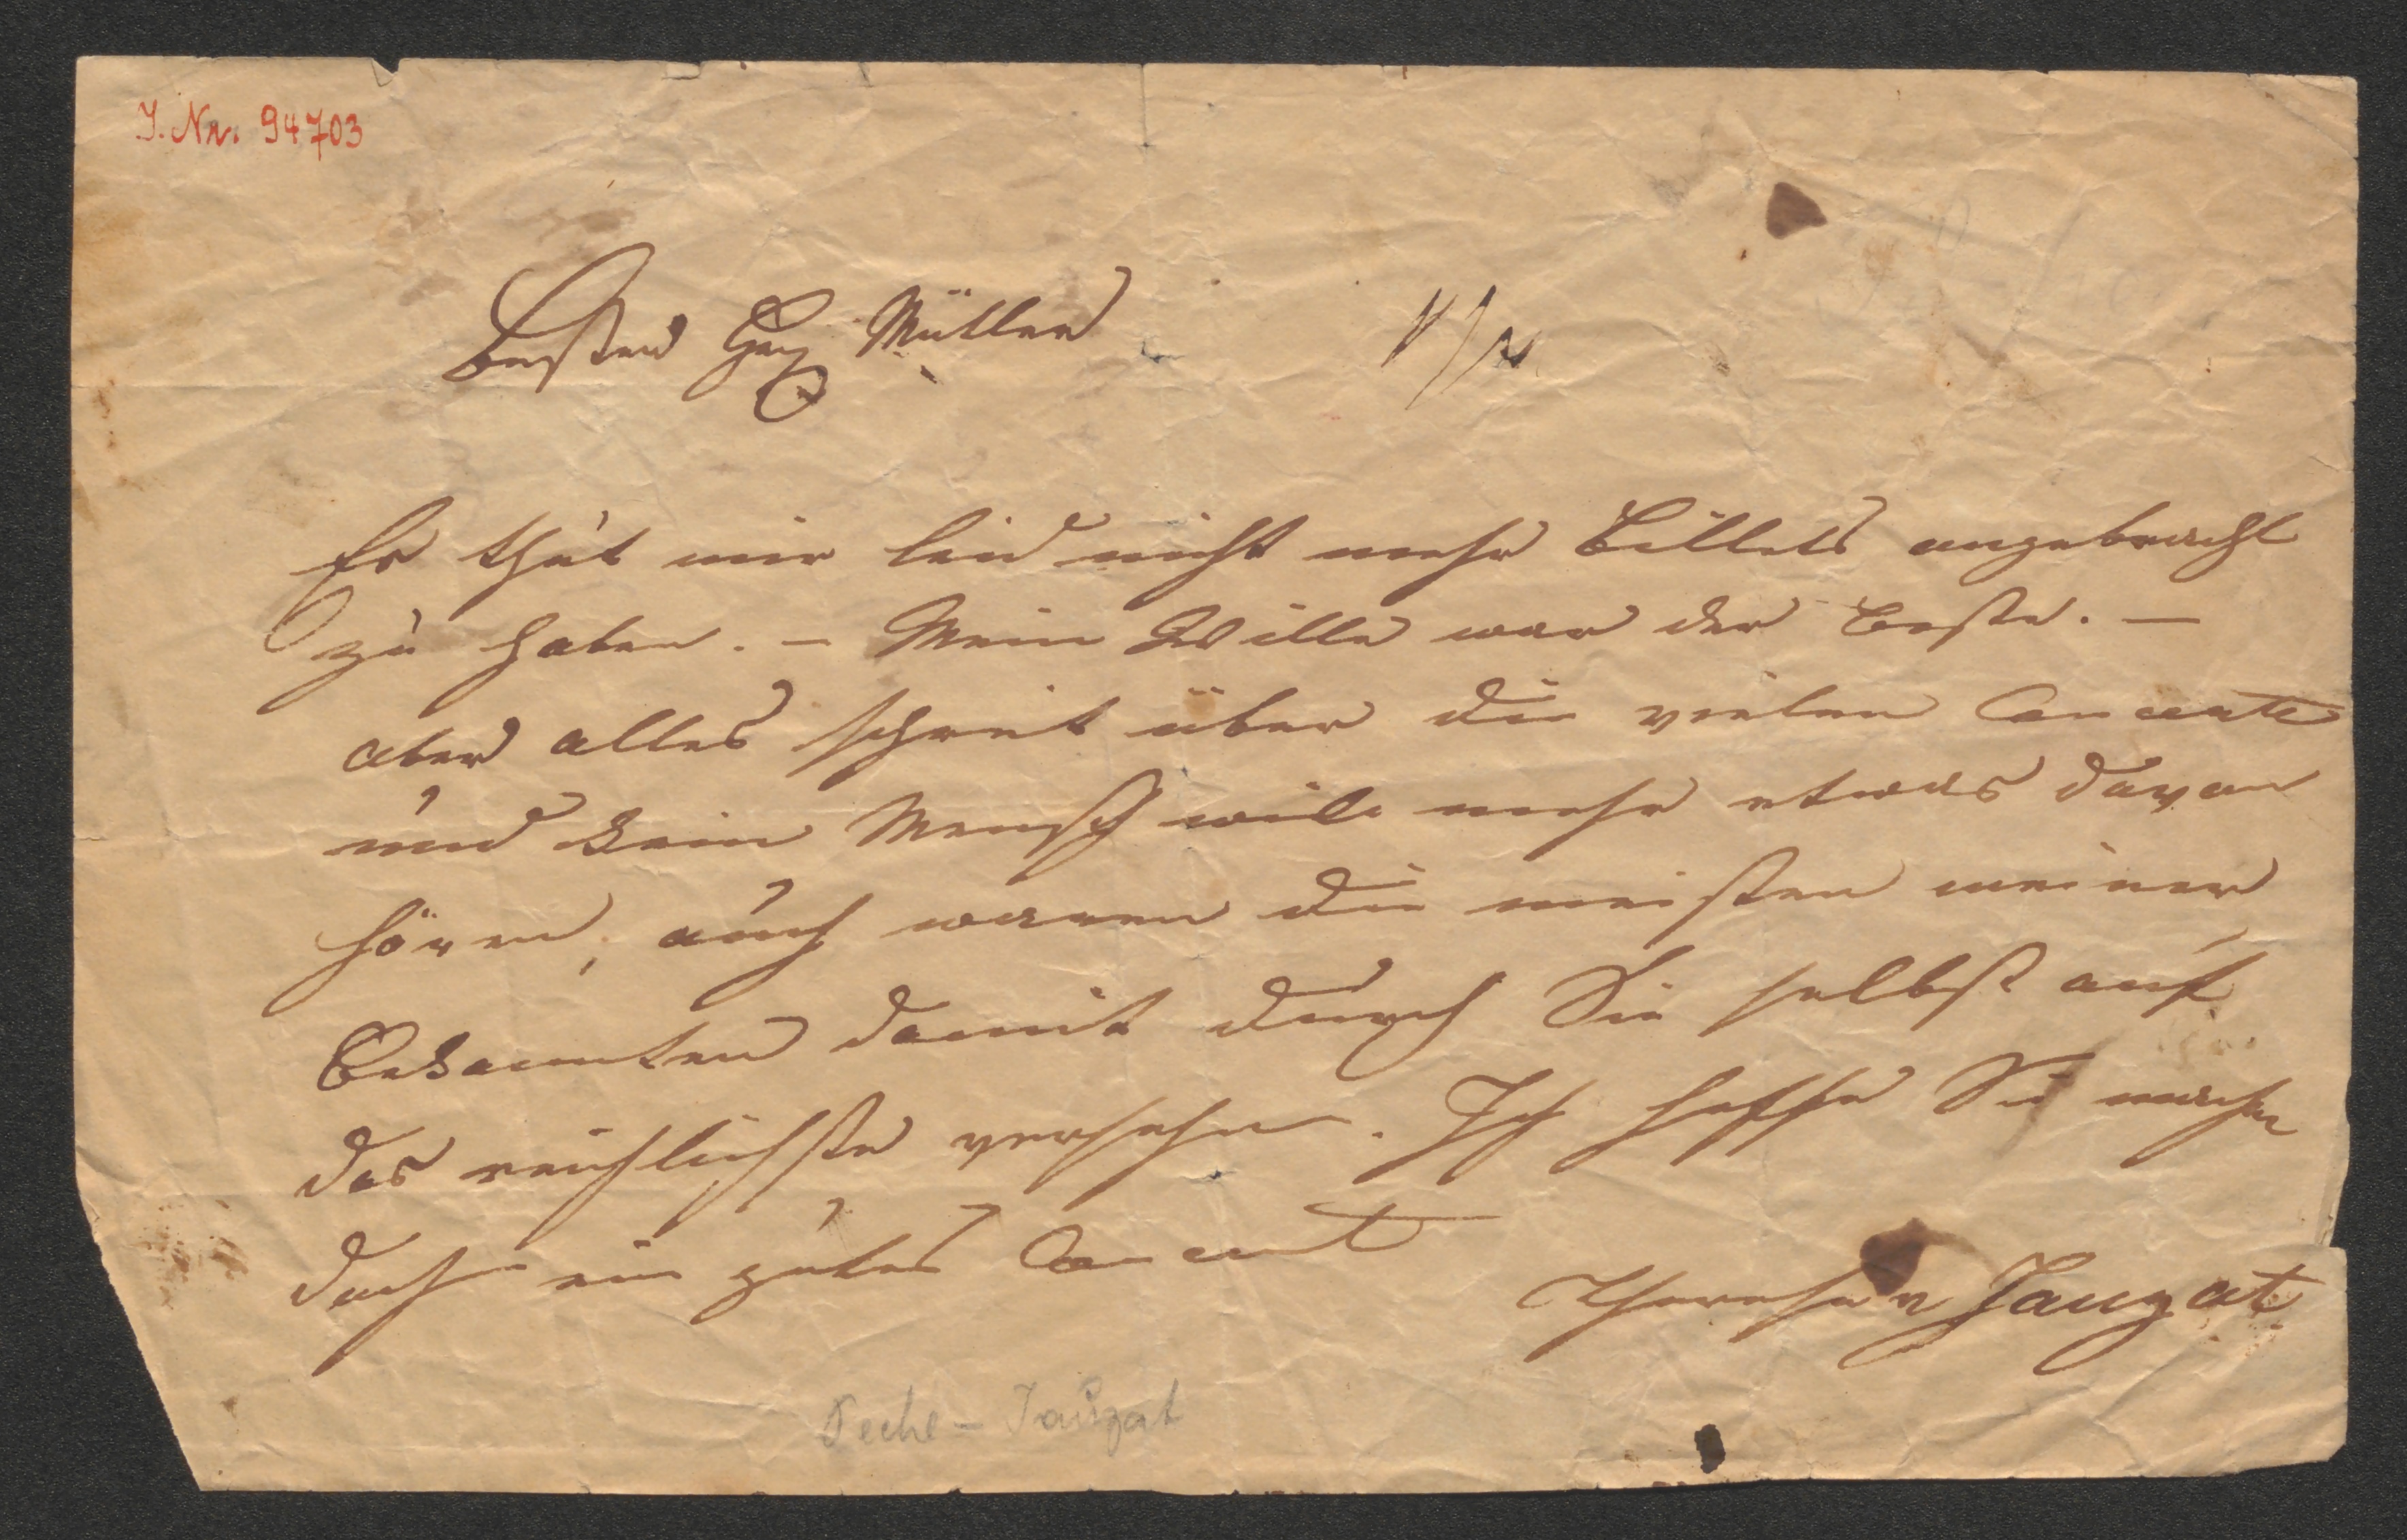 I. Nr. 94703
Bester Herr Müller
Es thut mir leid nicht mehr Billets angebracht
zu haben. – Mein Wille war der beste. –
aber alles schreit über die vielen Concerte
und kein Mensch will mehr etwas davon
hören, auch waren die meisten meiner
Bekannten damit durch Sie selbst auf
das reichlichste versehen. Ich hoffe Sie machen
doch ein gutes Concert
Therese Jauzat
Peche – Jauzat